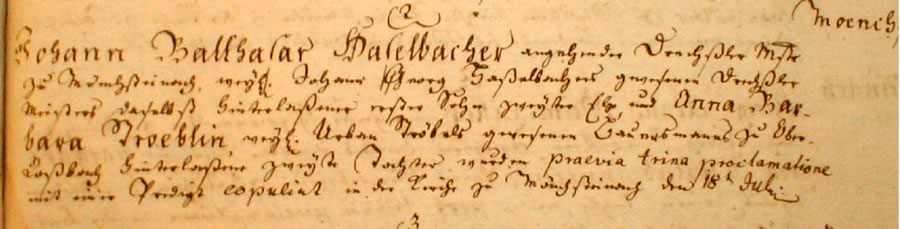 2
Moench
Johann Balthasar Haselbacher angehender Drechßler Mstr
zu Münchsteinach, weyl. Johann Georg Haßelbachers gewesenen Drechßler
Meisters daselbst hinterlaßener erster Sohn zweyter Ehe und Anna Bar-
bara Stroeblin, weyl. Urban Ströbels gewesenen Bauersmanns zu Ober-
Roßbach hinterlaßene zweyte Tochter wurden praevia trina proclamatione
mit einer Predigt copulirt in der Kirche zu Mönchsteinach den 18t Julii
3